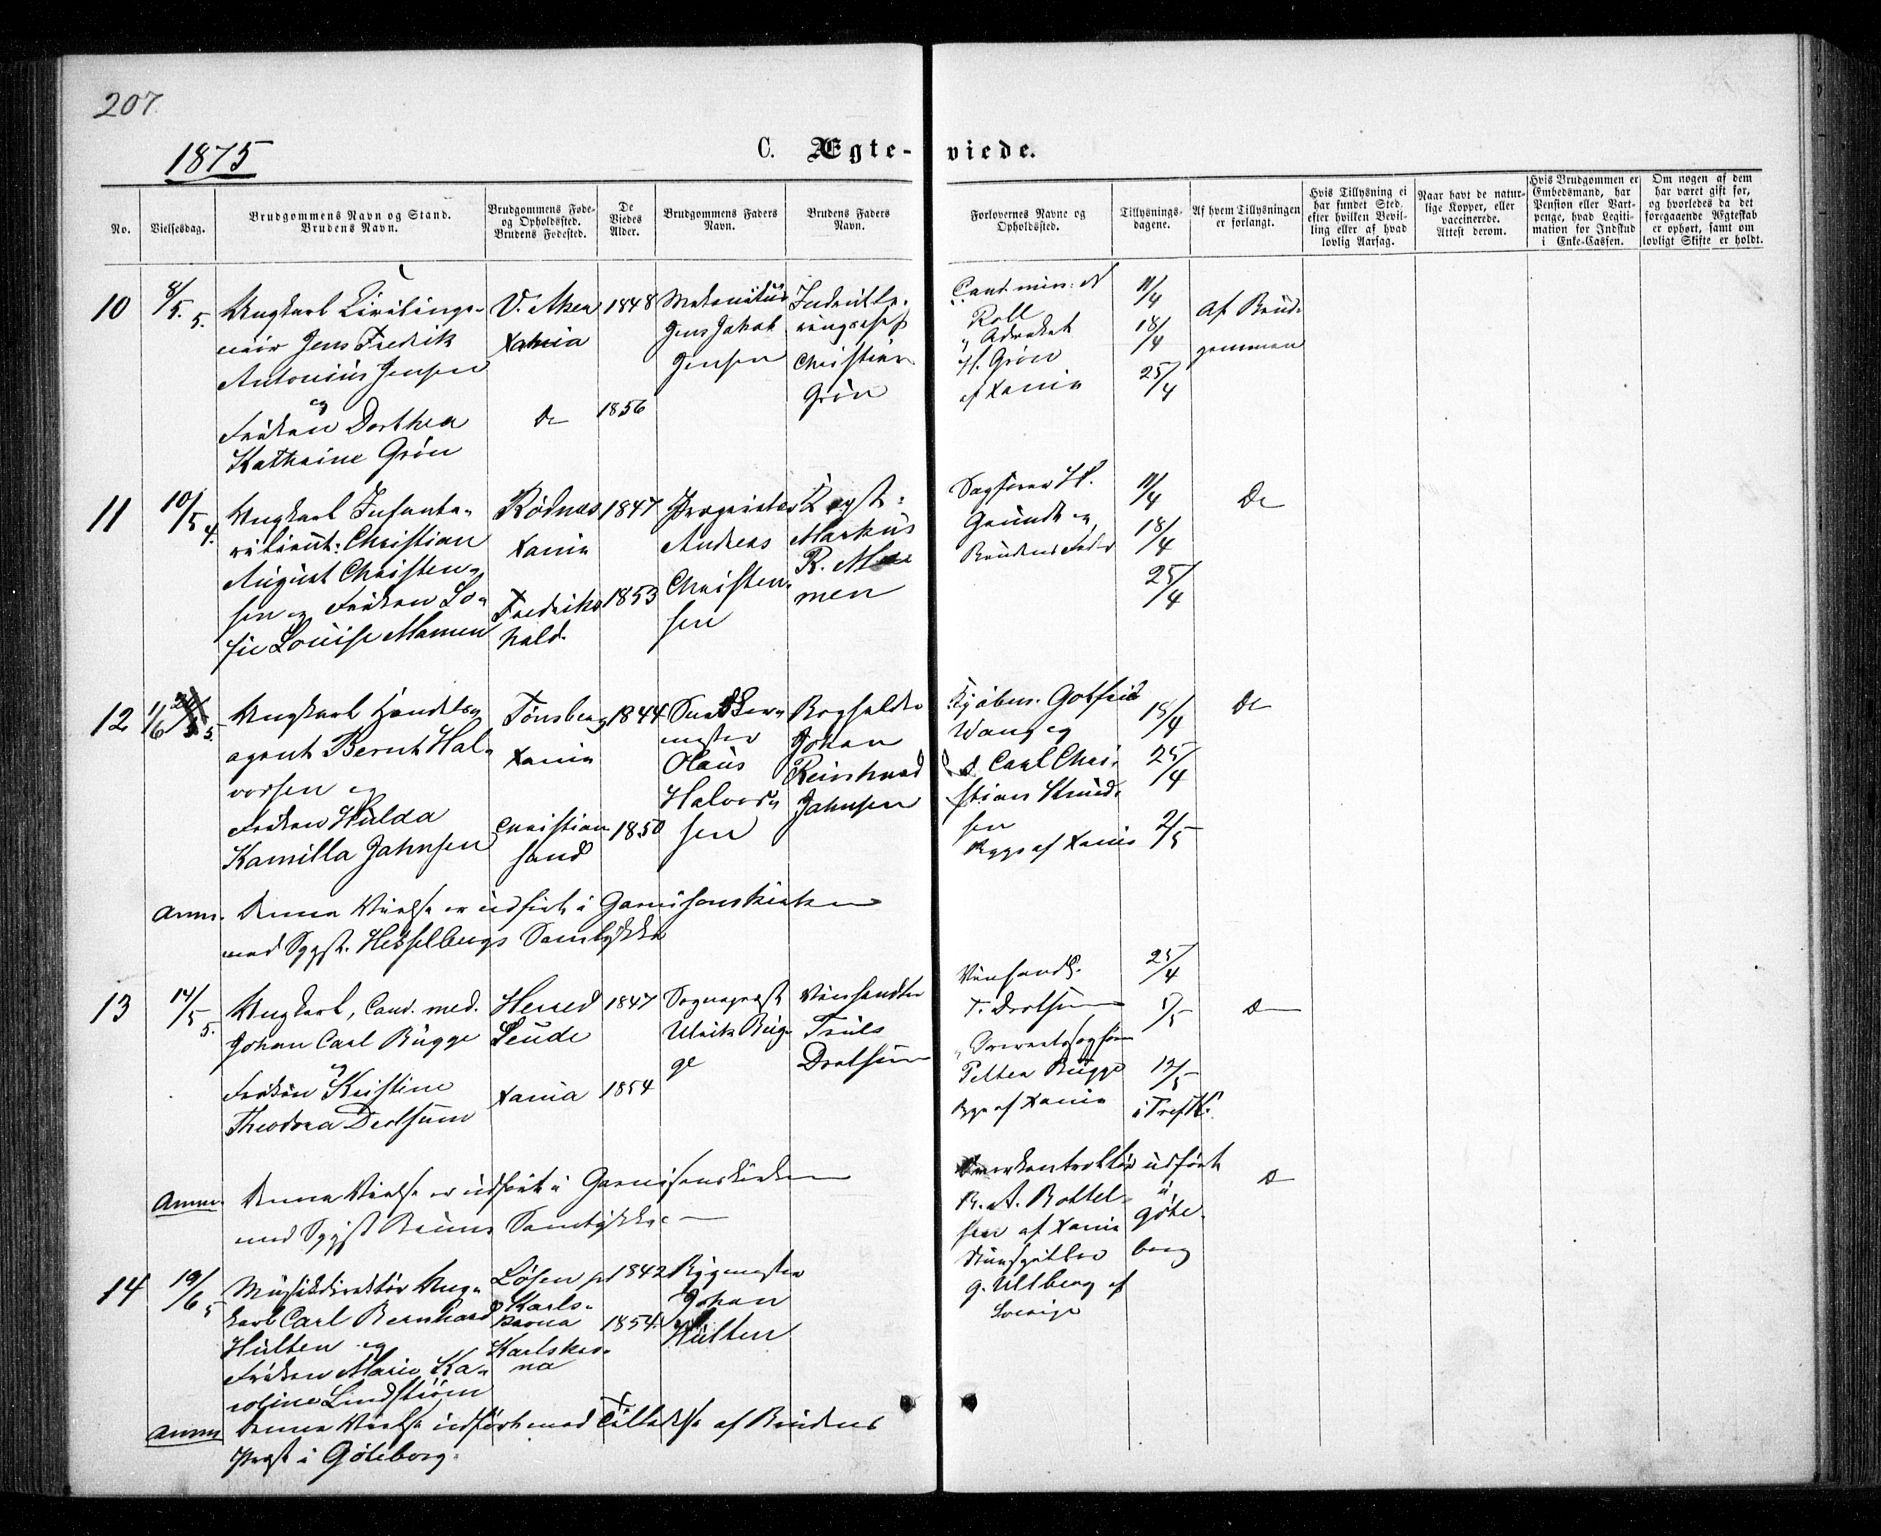 207.
1875
C. Ægte-viede.
No.
Vielsesdag.
Brudgommens Navn og Stand.
Brudens Navn.
Brudgommens Føde-
og Opholdssted.
Brudens Fødested.
De
Viedes
Alder.
Brudgommens Faders
Navn.
Brudens Faders
Navn.
Forlovernes Navne og
Opholdssted.
Tillysnings-
dagene.
Af hvem Tillysningen
er forlangt.
Hvis Tillysning ei
har fundet Sted,
efter hvilken Bevil-
ling eller af hvad
lovlig Aarsag.
Naar havt de natur-
lige Kopper, eller
vaccinerede.
Attest derom.
Hvis Brudgommen er
Embedsmand, har
Pension eller Vart-
penge, hvad Legiti-
mation for Indskud
i Enke-Cassen.
Om nogen af dem
har været gift før,
og hvorledes da det
foregaaende Ægteskab
er ophørt, samt om
lovligt Skifte er holdt.
10
8/5. 5.
Ungkarl Civilinge-
niør Jens Fredrik
Antonius Jensen
og
Frøken Dorthea
Kathrine Grøn
V. Aker
Xania
Do
1848
1856
Jens Jakob
Jensen
Christian
Grøn
Cand. min.
Roll
og Advokat
H. Grøn
af Xania
11/4
18/4
25/4
Af Brud-
gommen
11
10/5 4.
Ungkarl Infante-
rilieut: Christian
August Christen-
sen og Frøken So-
fie Louise Mamen
Rødnæs
Xania
Fredriks
hald.
1847
1853
Proprietær
Andreas
Christen-
sen
Markus
R. Ma
men
Sagfører H.
Grundt og
Brudens Fader
11/4
18/4
25/4
Do
12
1/6 5.
Ungkarl Handels-
agent Bernt Hal-
vorsen og
Frøken Hulda
Kamilla Jahnsen
Tønsberg
Xania
Christian
sand
1844
1850
Snedker-
mester
Olaus
Halvor-
sen
Bogholder
Johan
Reinhard
Jahnsen
Kjøbm. Gotfried
Wang og
do Carl Chri-
stian Knud-
sen
Begge af Xania
18/4
25/4
2/5
Do
Anm. Denne Vielse er udført i Garnisonskirken
med Sgpst. Hesselbergs Samtykke
13
14/5 5.
Ungkarl, Cand. med.
Johan Carl Bugge
og
Frøken Kristine
Theodora Drolsum
Herred
Seude
Xania
1847
1854
Sognepræst
Ulrik Bug-
ge
Vinhandler
Truls
Drolsum
Vinhandl.
T. Drolsum
Petter Bugge
Begge af Xania
25/4
2/5
17/5
i Tref. K.
Do
Anm. Denne Vielse er udført i Garnisonskirken
med Sgpst Bruuns Samtykke. —
14
19/6 5
Musikdirektør Ung-
karl Carl Bernhard
Hulten og
Frøken Marie Ka-
roline Lindstrøm
Løsen p.
Karls-
krona
Karlskro-
na
1842
1854.
Bygmester
Johan
Hulten
R. A. Bottel-
sen af Xania
G. Ullberg af
Sverige
udført
i
Gøte-
borg
Do
Anm Denne Vielse udført med Tilladelse af Brudens
Præst i Gøteborg.